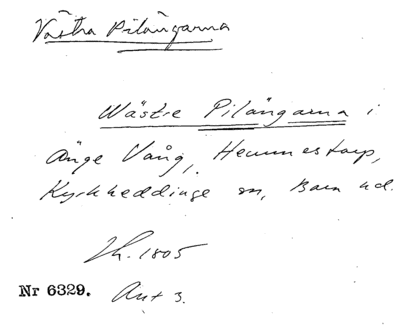 Västra Pilängarna
Wästre Pilängarna i
Änge Vång, Hemmestorp,
Kyrkheddinge sn, Bara hd.
Lh. 1805
Nr 6329. Akt 3.